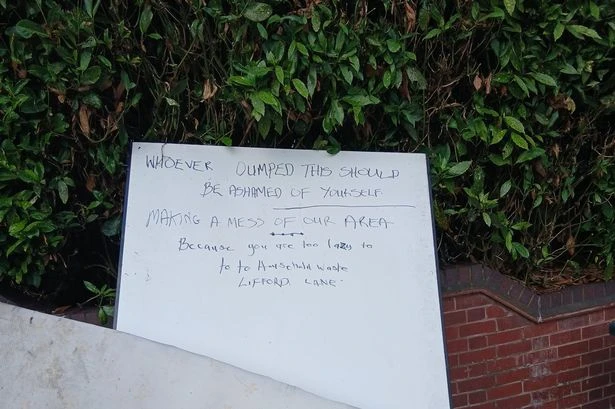 WHOEVER DUMPED THIS SHOULD
BE ASHAMED OF YOURSELF
MAKING A MESS OF OUR AREA
Because you are too lazy to
to to Household waste
LIFFORD LANE.